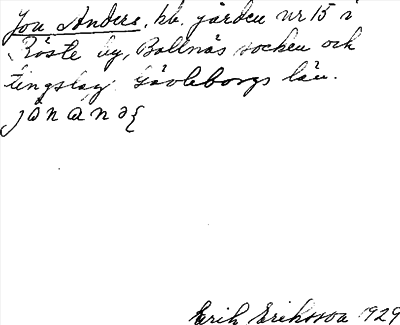 Jon Anders, hb. gården nr 15 i
Röste by, Bollnäs socken och
tingslag Gävleborgs län.
Erik Eriksson 1929